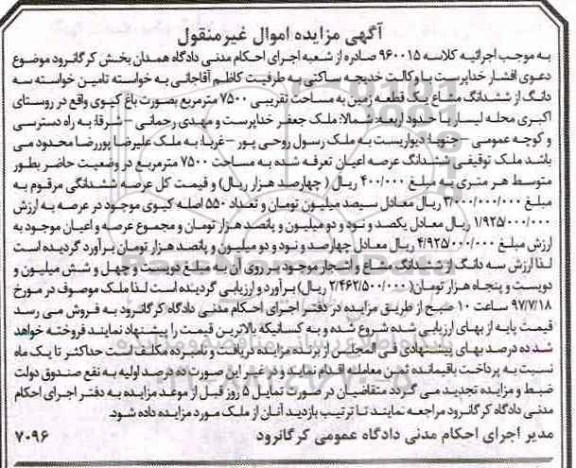 آگهی مزایده اموال غیرمنقول
به موجب اجرائیه کلاسه ۹۶۰۰۱۵ صادره از شعبه اجرای احکام مدنی دادگاه همدان بخش کرگانرود موضوع
دعوی افشار خداپرست با وکالت خدیجه ساکتی به طرفیت کاظم آقاجانی به خواسته تامین خواسته سه
دانگ از ششدانگ مشاع یک قطعه زمین به مساحت تقریبی ۷۵۰۰ مترمربع بصورت باغ کیوی واقع در روستای
اکبری محله لیسار با حدود اربعه: شمالا: ملک جعفر خداپرست و مهدی رحمانی –شرقا: به راه دسترسی
و کوچه عمومی –جنوبا: دیواریست به ملک رسول روحی پور –غربا: به ملک علیرضا پوررضا محدود می
باشد ملک توقیفی ششدانگ عرصه اعیان تعرفه شده به مساحت ۷۵۰۰ مترمربع در وضعیت حاضر بطور
متوسط هر متری به مبلغ ۴۰۰/۰۰۰ ریال ( چهارصد هزار ریال) و قیمت کل عرصه ششدانگی مرقوم به
مبلغ ۳/۰۰۰/۰۰۰/۰۰۰ ریال معادل سیصد میلیون تومان و تعداد ۵۵۰ اصله کیوی موجود در عرصه به ارزش
۱/۹۲۵/۰۰۰/۰۰۰ ریال معادل یکصد و نود و دو میلیون و پانصد هزار تومان و مجموع عرصه و اعیان موجود به
ارزش مبلغ ۴/۹۲۵/۰۰۰/۰۰۰ ریال معادل چهارصد و نود و دو میلیون و پانصد هزار تومان برآورد گردیده است
لذا ارزش سه دانگ از ششدانگ مشاع و اشجار موجود بر روی آن به مبلغ دویست و چهل و شش میلیون و
دویست و پنجاه هزار تومان( ۲/۴۶۲/۵۰۰/۰۰۰ ریال) برآورد و ارزیابی گردیده است لذا ملک موصوف در مورخ
۹۷/۷/۱۸ ساعت ۱۰ صبح از طریق مزایده در دفتر اجرای احکام مدنی دادگاه کرگانرود به فروش می رسد
قیمت پایه از بهای ارزیابی شده شروع شده و به کسانیکه بالاترین قیمت را پیشنهاد نمایند فروخته خواهد
شد ده درصد بهای پیشنهادی فی المجلس از برنده مزایده دریافت و نامبرده مکلف است حداکثر تا یک ماه
نسبت به پرداخت باقیمانده ثمن معامله اقدام نماید و در غیر این صورت ده درصد اولیه به نفع صندوق دولت
ضبط و مزایده تجدید می گردد متقاضیان در صورت تمایل ۵ روز قبل از موعد مزایده به دفتر اجرای احکام
مدنی دادگاه کرگانرود مراجعه نمایند تا ترتیب بازدید آنان از ملک مورد مزایده داده شود.
مدیر اجرای احکام مدنی دادگاه عمومی کرگانرود ۷۰۹۶